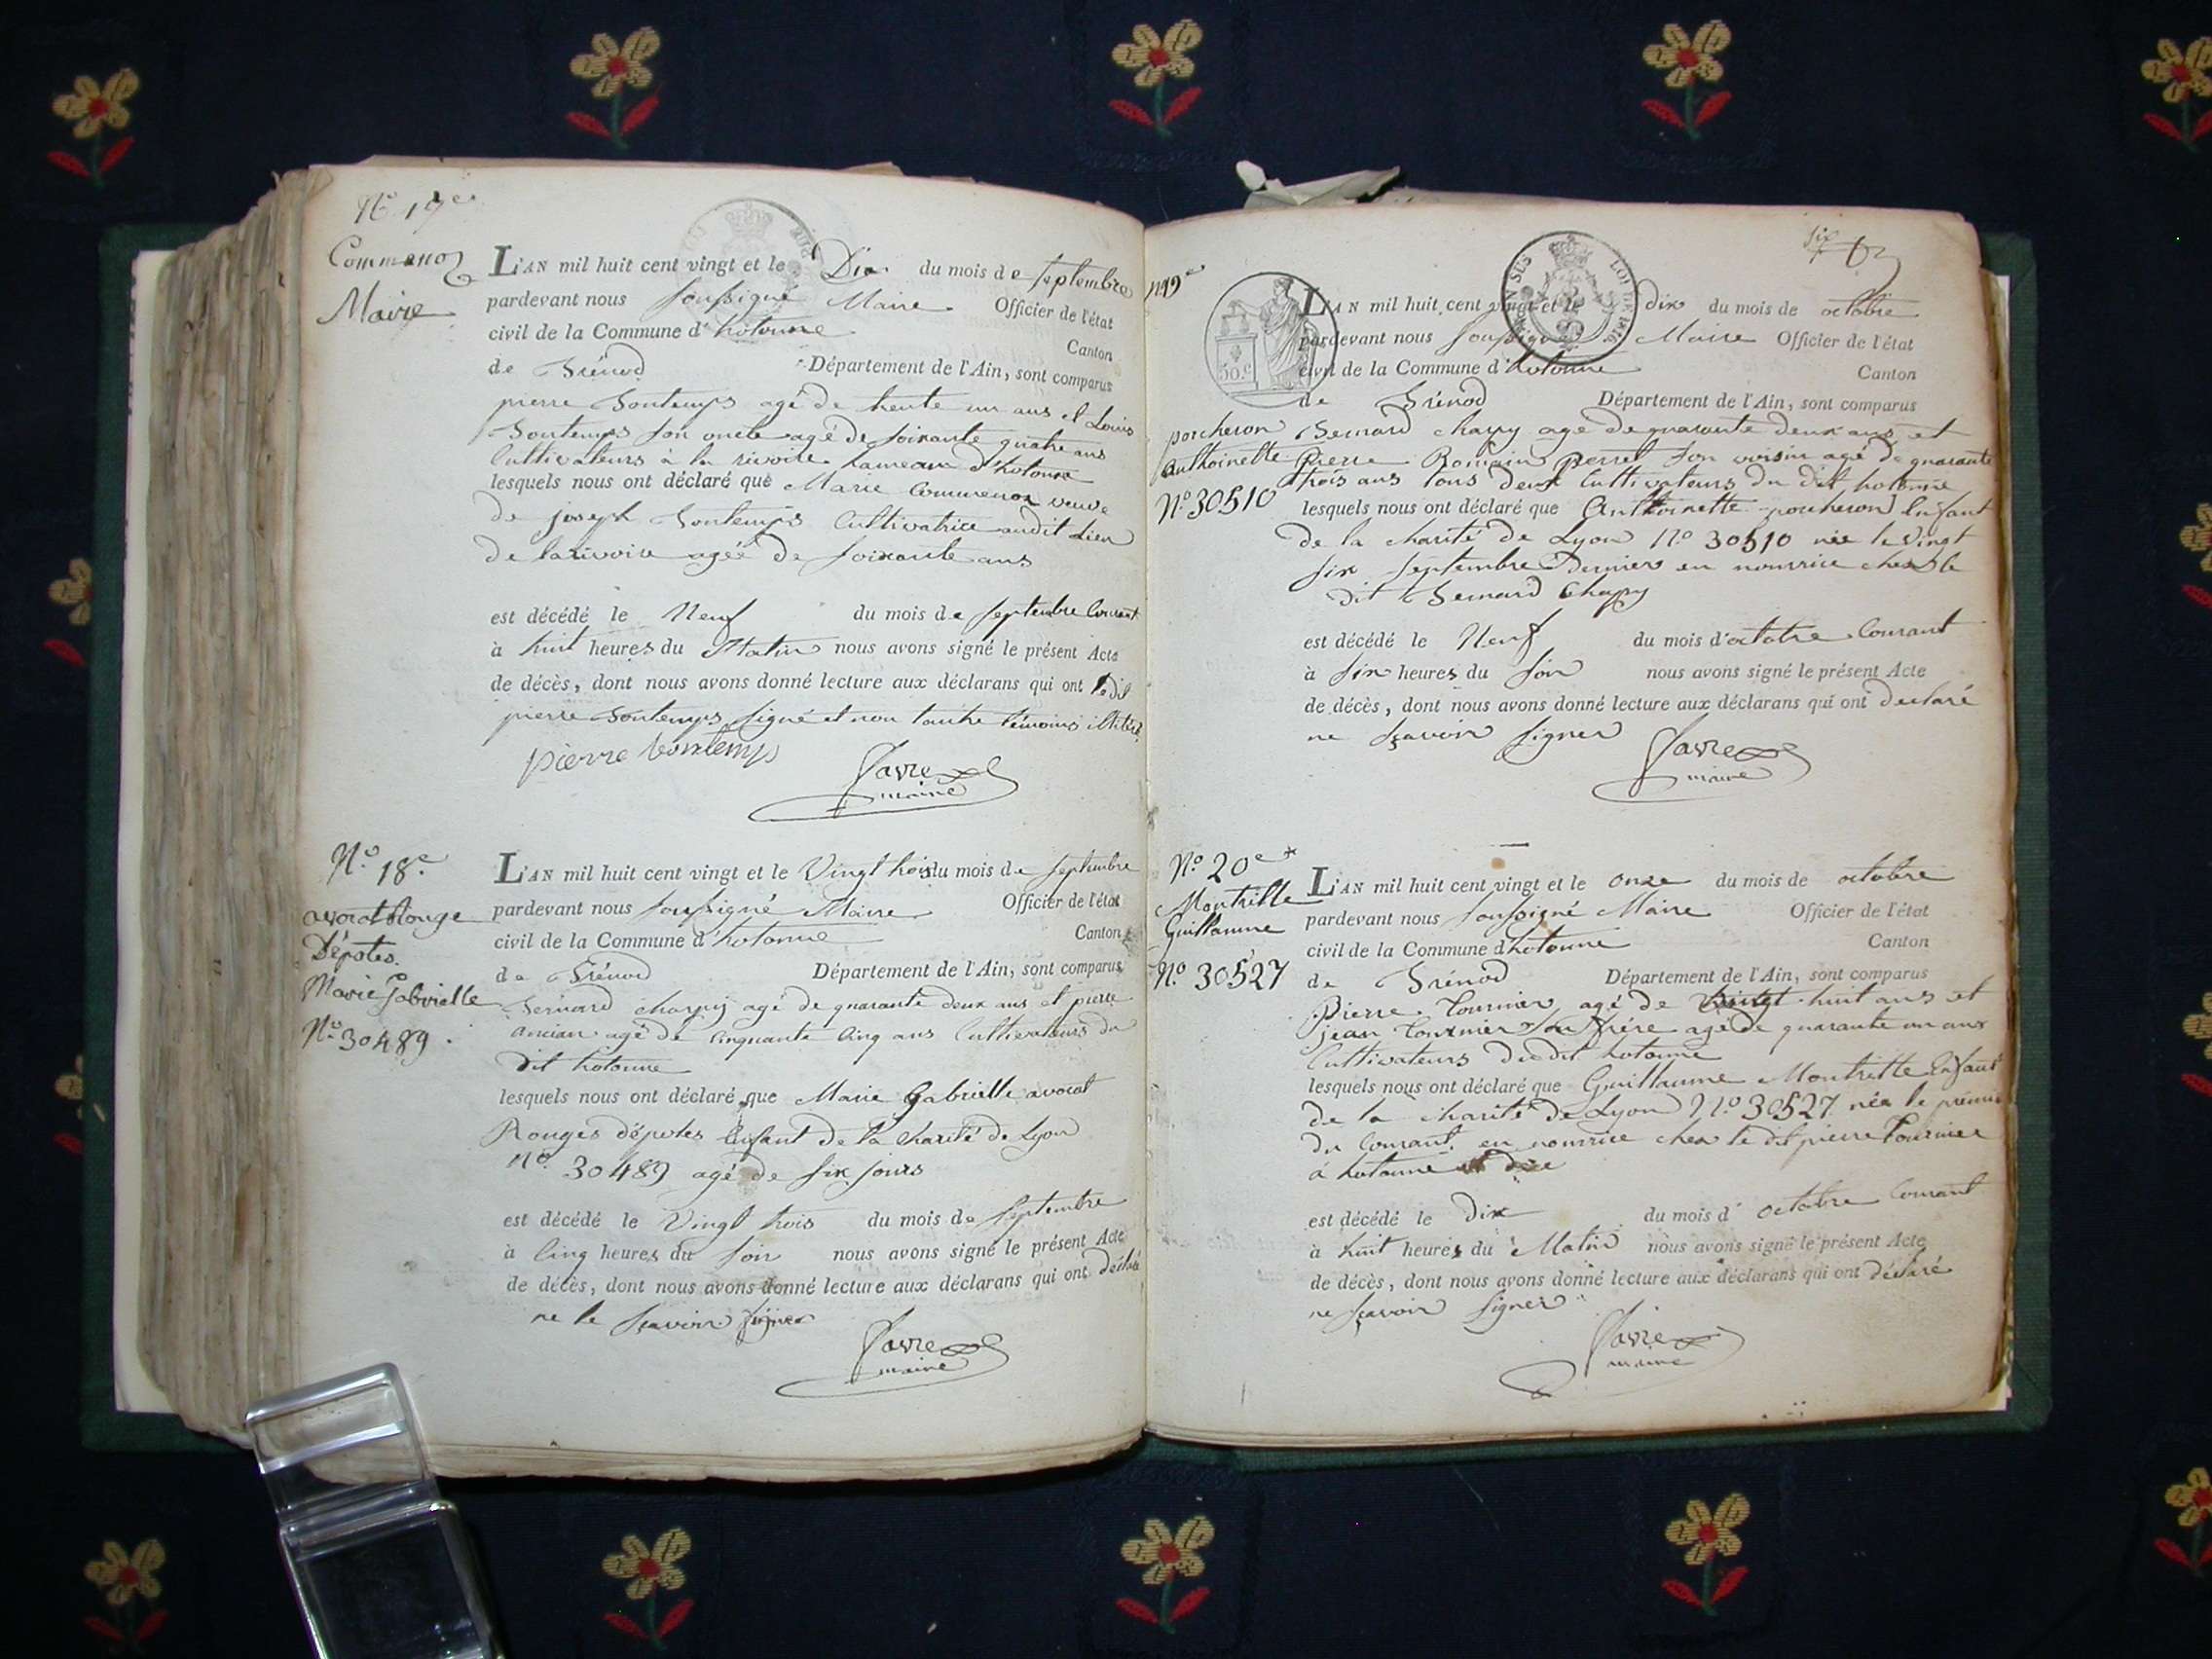 N.° 17.e
Commenoz
Marie
L'AN mil huit cent vingt et le Dix du mois de septembre
pardevant nous soussigné Maire Officier de l'état
civil de la Commune d'hotonne
Canton
de Brénod Département de l'Ain, sont comparus
pierre Bontemps agé de trente un ans et Louis
Bontemps son oncle agé de soixante quatre ans
Cultivateurs à la rivoire hameau d'hotonne
lesquels nous ont déclaré que Marie Commenoz veuve
de joseph Bontemps Cultivatrice audit Lieu
de larivoire agée de soixante ans
est décédé le Neuf du mois de septembre Courant
à huit heures du Matin nous avons signé le présent Acte
de décès, dont nous avons donné lecture aux déclarans qui ont ledit
pierre Bontemps signé et non lautre témoins
pierre bontemps
favre
maire
N.° 18.e
avocat Rouge
Dépotes.
Marie Gabrielle
N.° 30489.
L'AN mil huit cent vingt et le Vingt trois du mois de septembre
pardevant nous soussigné Maire Officier de l'état
civil de la Commune d'hotonne Canton
de Brénod Département de l'Ain, sont comparus
Bernard chapuy agé de quarante deux ans et pierre
ancian agé de cinquante cinq ans Cultivateurs du
dit hotonne
lesquels nous ont déclaré que Marie Gabrielle avocat
Rouges dépotes Enfant de la Charité de Lyon
N.° 30489 agé de six jours
est décédé le Vingt trois du mois de septembre
à Cinq heures du soir nous avons signé le présent Acte
de décès, dont nous avons donné lecture aux déclarans qui ont déclaré
ne le sçavoir signer
favre
maire
six
N.°19e
50.c
L'AN mil huit cent vingt et le dix du mois de octobre
pardevant nous soussigné Maire Officier de l'état
civil de la Commune d'hotonne Canton
de Brénod Département de l'Ain, sont comparus
porcheron
Anthoinette
N.° 30510
Bernard chapuy agé de quarante deux ans et
Pierre Romain perret son voisin agé de quarante
trois ans tous deux Cultivateurs du dit hotonne
lesquels nous ont déclaré que Anthoinette porcheron Enfant
de la charité de Lyon N.° 30510 née le vingt
six septembre Dernier en nourrice chez le
dit Bernard Chapuy
est décédé le Neuf du mois d'octobre Courant
à six heures du soir nous avons signé le présent Acte
de décès, dont nous avons donné lecture aux déclarans qui ont déclaré
ne sçavoir signer
favre
maire
N.° 20e
Montrille
Guillaume
N.° 30527
L'AN mil huit cent vingt et le onze du mois de octobre
pardevant nous soussigné Maire Officier de l'état
civil de la Commune d'hotonne Canton
de Brénod Département de l'Ain, sont comparus
Pierre Tournier agé de vingt huit ans et
jean Tournier son frère agé de quarante un ans
Cultivateurs dudit hotonne
lesquels nous ont déclaré que Guillaume Montrille Enfant
de la charité de Lyon N.° 30527 née le premier
du Courant en nourrice chez le dit pierre Tournier
à hotonne
est décédé le dix du mois d' octobre Courant
à huit heures du Matin nous avons signé le présent Acte
de décès, dont nous avons donné lecture aux déclarans qui ont déclaré
ne sçavoir signer
favre
maire